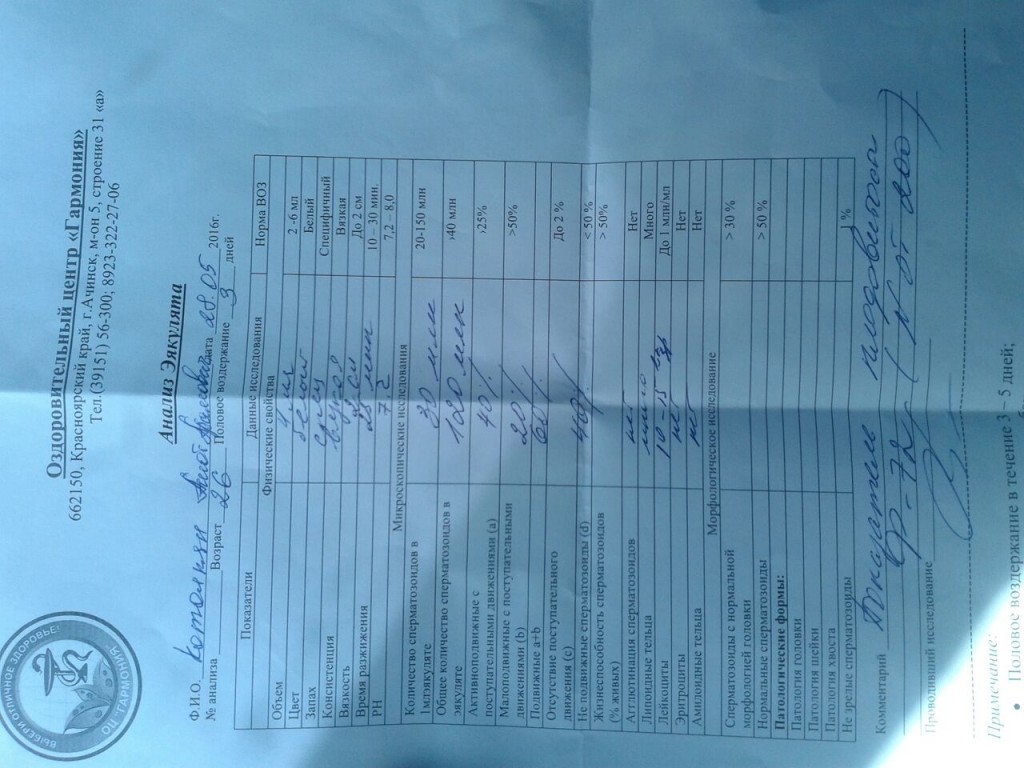 ВЫБЕРИ ОТЛИЧНОЕ ЗДОРОВЬЕ!
ОЦ "ГАРМОНИЯ"
Оздоровительный центр «Гармония»
662150, Красноярский край, г.Ачинск, м-он 5, строение 31 «а»
Тел.(39151) 56-300; 8923-322-27-06
Анализ Эякулята
Ф.И.О. дата 28.05 2016г.
№ анализа Возраст 26 Половое воздержание 3 дней
Показатели Данные исследования Норма ВОЗ
Физические свойства
Объем 4 мл 2 -6 мл
Цвет белый Белый
Запах спец Специфичный
Консистенция Вязкая
Вязкость До 2 см
Время разжижения 25 мин 10 – 30 мин.
PH 7.2 7,2 – 8,0
Микроскопические исследования
Количество сперматозоидов в 1мл эякуляте 30 млн 20-150 млн
Общее количество сперматозоидов в эякуляте 120 млн ›40 млн
Активноподвижные с поступательными движениями (a) 40% ›25%
Малоподвижные с поступательными движениями (b) 20%
Подвижные a+b 60% >50%
Отсутствие поступательного движения (c) До 2 %
Не подвижные сперматозоиды (d) 40% < 50 %
Жизнеспособность сперматозоидов (% живых) > 50%
Агглютинация сперматозоидов нет Нет
Липоидные тельца много Много
Лейкоциты 10-15 До 1 млн/мл
Эритроциты нет Нет
Амилоидные тельца нет Нет
Морфологическое исследование
Сперматозоиды с нормальной морфологией головки > 30 %
Нормальные сперматозоиды > 50 %
Патологические формы:
Патология головки
Патология шейки
Патология хвоста
Не зрелые сперматозоиды %
Комментарий Показатель плодовитости
Ф-72 (N от 200)
Проводивший исследование
Примечание:
• Половое воздержание в течение 3 – 5 дней;